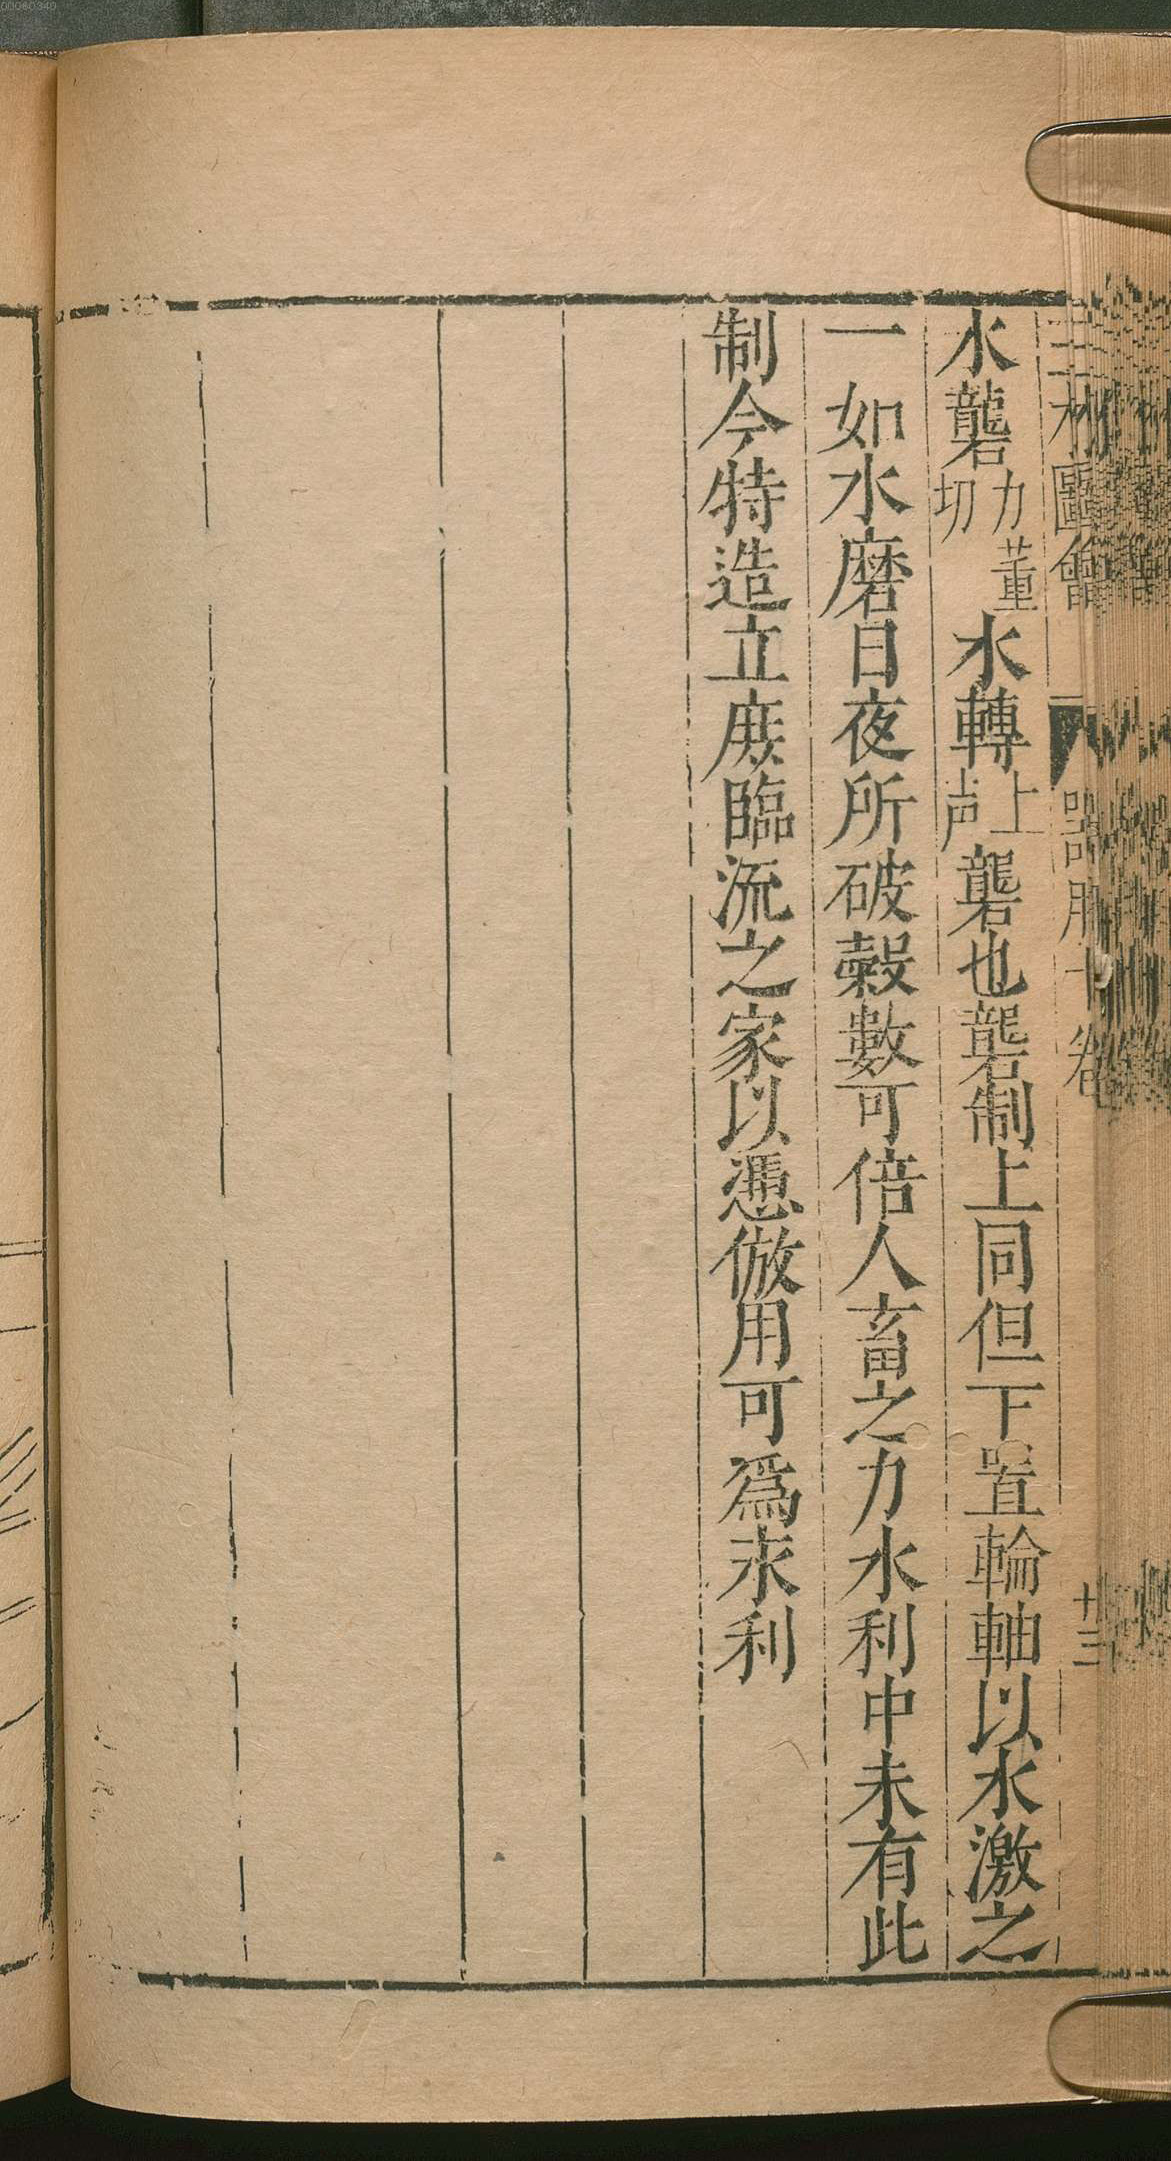 三才圖會 器用十卷 廿三
水礱力董切水轉上声礱也礱制上同但下置輪軸以水激之
一如水磨日夜所破穀數可倍人畜之力水利中未有此
制今特造立庻臨流之家以憑倣用可爲求利
00080340